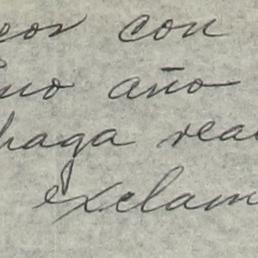 eos con
año
haga rea
exclam